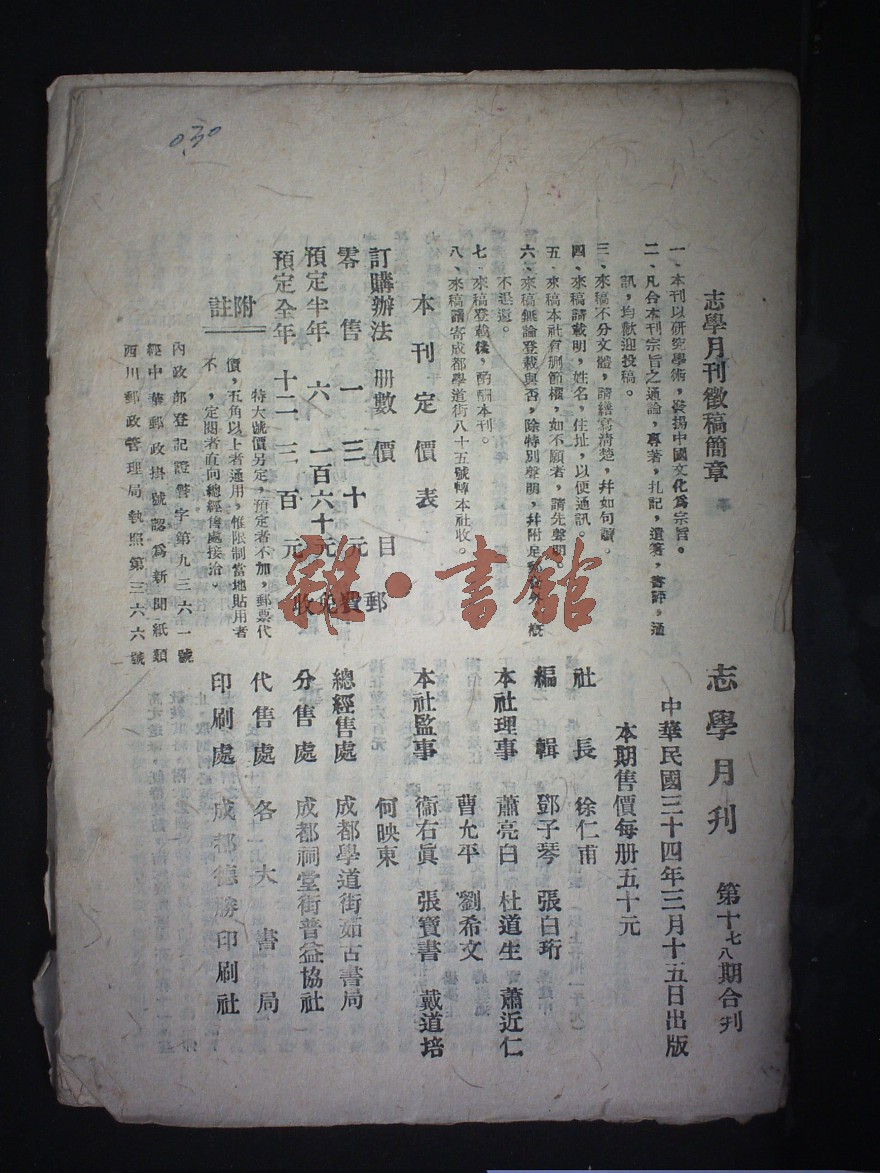 030
志學月刊徵稿簡章
一、本刊以研究學術，發揚中國文化爲宗旨。
二、凡合本刊宗旨之通論，專著，扎記，遺著，書評，通
訊，均歡迎投稿。
三、來稿不分文體，請繕寫清楚，幷如句讀。
四、來稿請載明，姓名，住址，以便通訊。
五、來稿本社有刪節權，如不願者，請先聲明。
六、來稿無論登載與否，除特別聲明，幷附足郵資外，概
不退還。
七、來稿登載後，酌酬本刊。
八、來稿請寄成都學道街八十五號轉本社收。
本刊定價表
訂購辦法 册數 價目 郵
零售 一 三十元 費
預定半年 六 一百六十元 免
預定全年 十二 三百元 收
附註
特大號價另定，預定者不加，郵票代
價，五角以上者通用，惟限制當地貼用者
不，定閱者直向總經售處接洽。
內政部登記證警字第九三六一號
經中華郵政掛號認爲新聞紙類
西川郵政管理局執照第三六六號
志學月刊 第十七八期合刋
中華民國三十四年三月十五日出版
本期售價每册五十元
社長 徐仁甫
編輯 鄧子琴 張白珩
本社理事 蕭亮白 杜道生 蕭近仁
曹允平 劉希文
本社監事 衞右眞 張寶書 戴道培
何映東
總經售處 成都學道街茹古書局
分售處 成都祠堂街普益協社
代售處 各大書局
印刷處 成都德勝印刷社
雜·書館